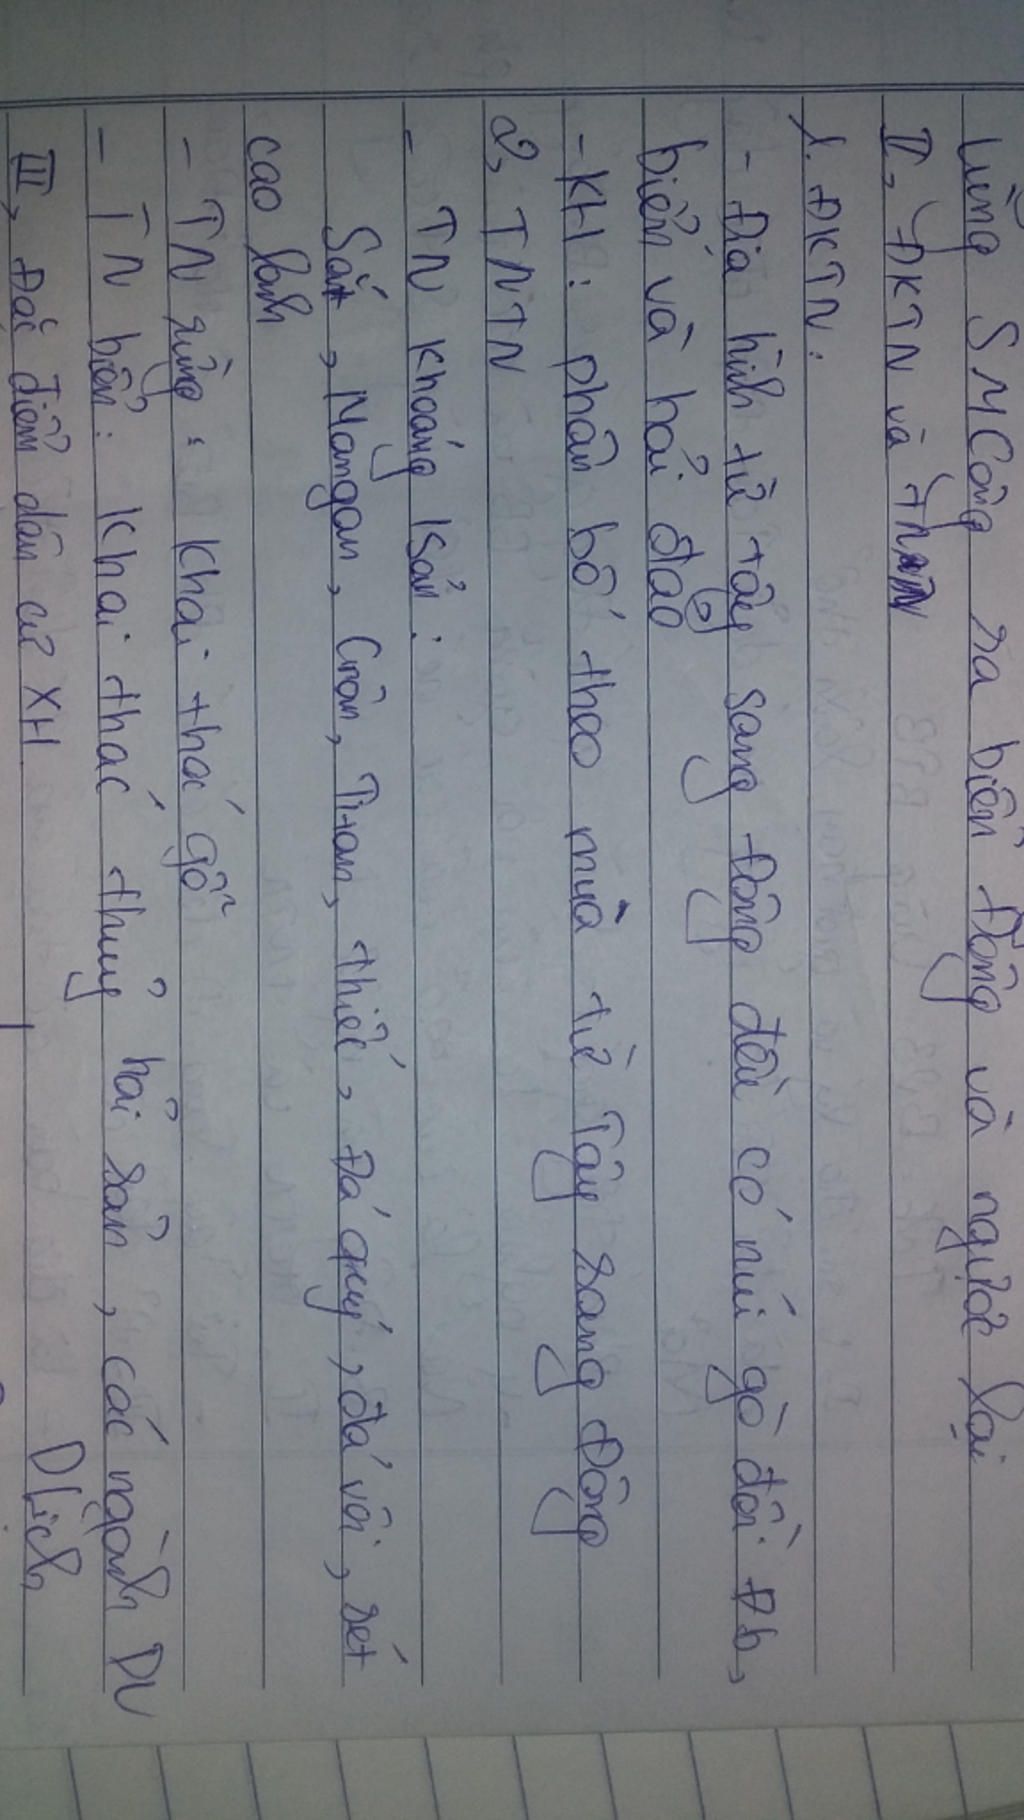 Lùng SMCông ra biển Đông và ngược lại
II, ĐKTN và TNTN
1. ĐKTN:
- Địa hình từ tây sang Đông đều có núi gò đồi Đb,
biển và hải đảo
- KH: phân bố theo mùa từ Tây sang Đông
2, TNTN
- TN Khoáng Sản:
Sắt, Mangan, Crôm, Titan, thiếc, Đá quý, đá vôi, sét
cao lanh
- TN rừng: Khai thác gỗ
- TN biển: Khai thác thuỷ hải sản, các ngành DV
DLịch
III, Đặc điểm dân cư XH.